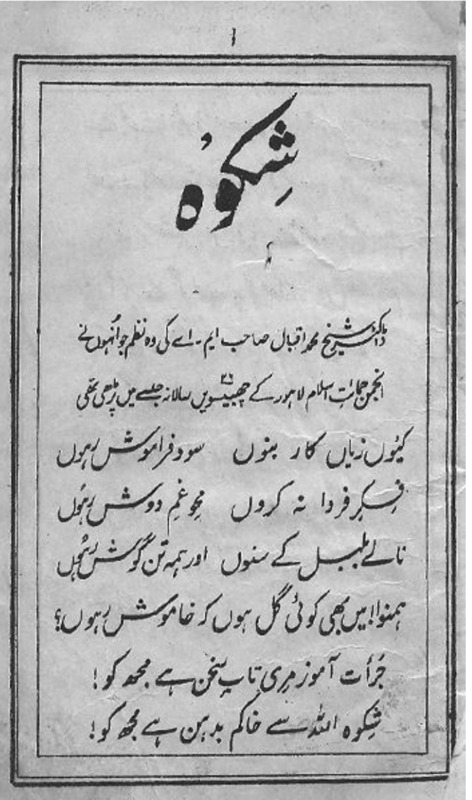 ۱
شِکوہ
ڈاکٹر شیخ محمد اقبال صاحب ایم۔اے کی وہ نظم جو اُنہوں نے
انجمن حمایت اسلام لاہور کے چھبیسویں سالانہ جلسے میں پڑھی تھی
کیوں زیاں کار بنوں سود فراموش رہوں
فکرِ فردا نہ کروں محوِ غمِ دوش رہوں
نالے بلبل کے سنوں اور ہمہ تن گوش رہوں
ہمنوا! میں بھی کوئی گل ہوں کہ خاموش رہوں؟
جُرأت آموز مِری تابِ سخن ہے مجھ کو!
شِکوہ اللہ سے خاکم بدہن ہے مجھ کو!